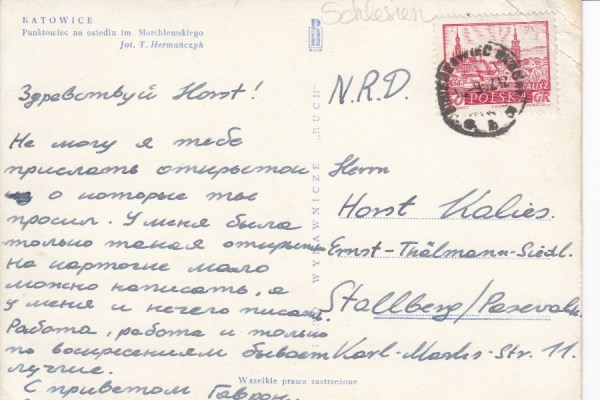 KATOWICE
Punktowiec na osiedlu im. Marchlewskiego
fot. T. Hermańczyk
Schlesien
POLSKA
GR
Здравствуй Horst!
Не могу я тебе
прислать открыток
о которые ты
просил. У меня была
только такая
на картоне мало
можно написать, а
у меня и нечего писать.
Работа, работа и только
по воскресениям бывает
лучше.
С приветом Гаврон
WYDAWNICZE „RUCH”
N.R.D.
Herrn
Horst Kalies.
Ernst-Thälmann-Siedl.
Stallberg/Pasewalk
Karl-Marks-Str. 11.
Wszelkie prawa zastrzeżone